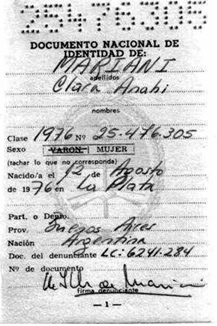 25476305
DOCUMENTO NACIONAL DE
IDENTIDAD DE:
MARIANI
apellidos
Clara Anahi
nombres
Clase 1976 Nº 25.476.305
Sexo VARON. MUJER
(tachar lo que no corresponda)
Nacido/a el 12 de Agosto
de 1976 en La Plata
Part. o Depto.
Prov. Buenos Aires
Nación Argentina
Doc. del denunciante LC: 6241.284
Nº de documento
firma denunciante
— 1 —